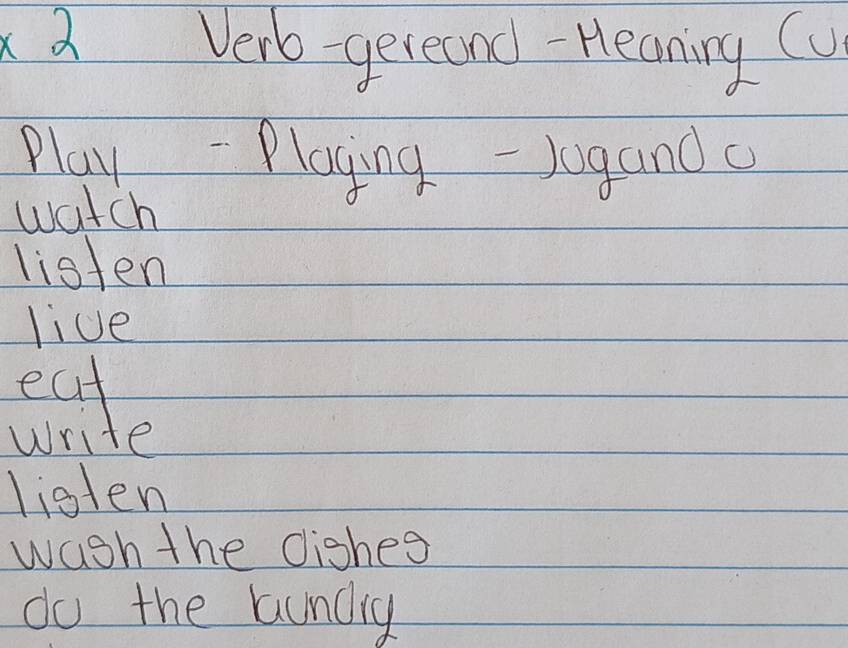 x 2 Verb - gereond - Meaning
Play - Playing - Jogando
watch
listen
live
eat
write
listen
wash the dishes
do the laundry